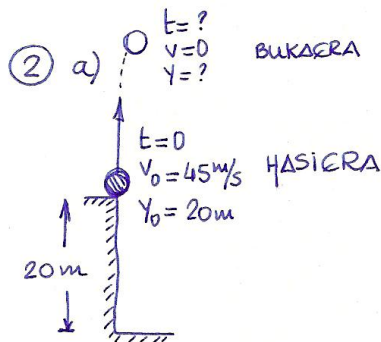 ② a)
t=?
v=0
y=?
BUKAERA
t=0
v₀=45 m/s
y₀=20m
HASIERA
20m